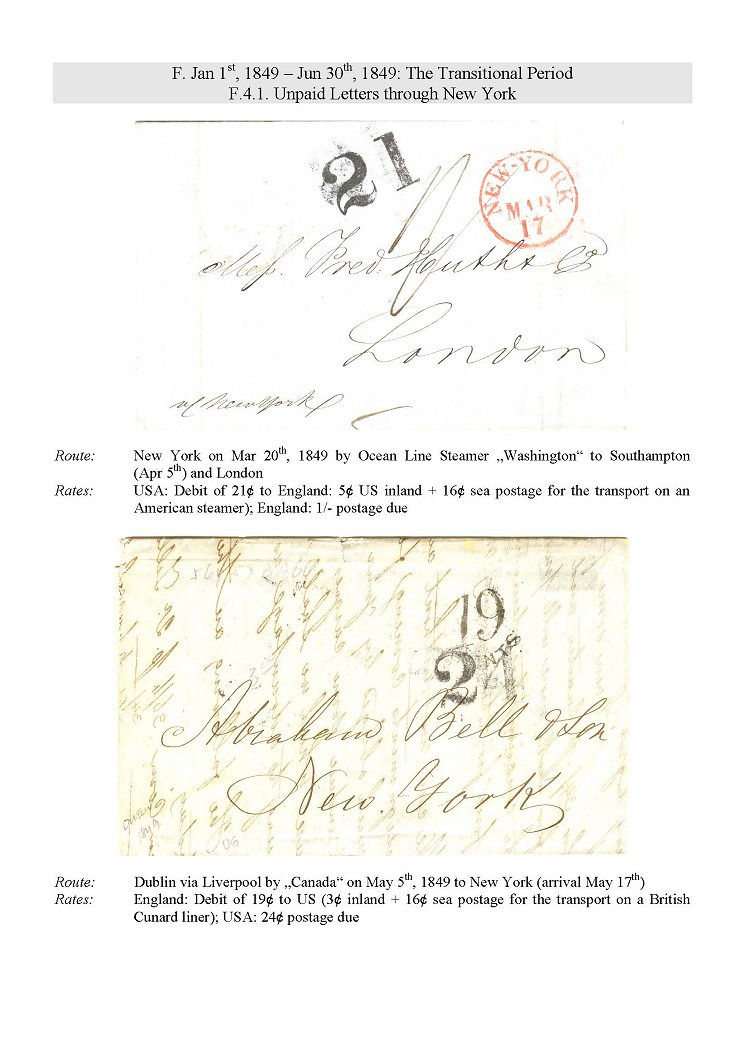 F. Jan 1st, 1849 – Jun 30th, 1849: The Transitional Period
F.4.1. Unpaid Letters through New York
21
NEW-YORK
MAR
17
Mess. Fred. Huths & Co
London
v/ New York
Route: New York on Mar 20th, 1849 by Ocean Line Steamer „Washington“ to Southampton
(Apr 5th) and London
Rates: USA: Debit of 21¢ to England: 5¢ US inland + 16¢ sea postage for the transport on an
American steamer); England: 1/- postage due
19
CENTS
24
Abraham Bell & Son
New York
1849
06
Route: Dublin via Liverpool by „Canada“ on May 5th, 1849 to New York (arrival May 17th)
Rates: England: Debit of 19¢ to US (3¢ inland + 16¢ sea postage for the transport on a British
Cunard liner); USA: 24¢ postage due